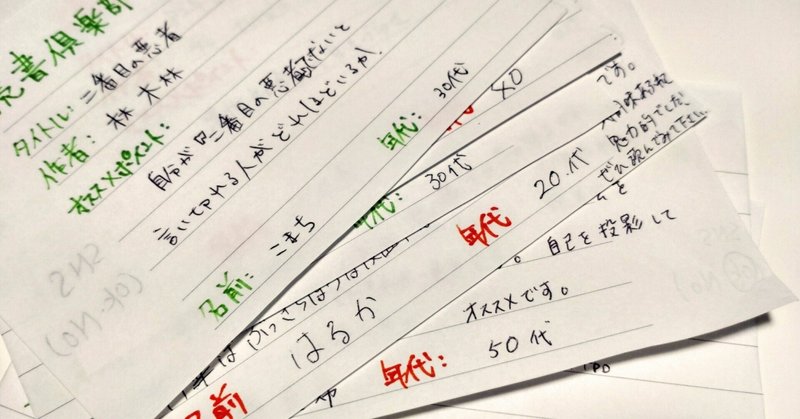 読書倶楽部
タイトル: 二番目の悪者
作者: 林木林
オススメポイント:
自分が「二番目の悪者」でないと
言いきれる人がどれほどいるか.
名前: こまち
年代: 30代
SNS
(OK・NO)
年代: 30代
年代 20代
名前 はるか
です。
魅力的でした!
ぜひ読んでみて下さい
。自己を投影して
オススメです。
年代: 50代